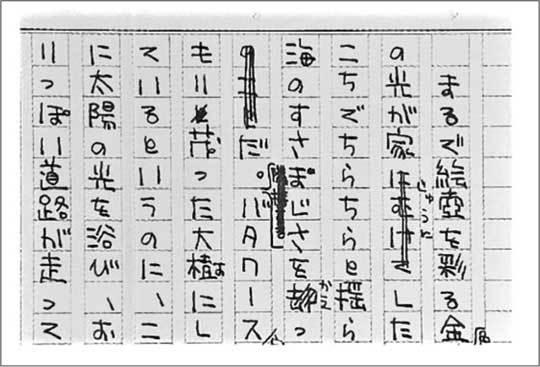 まるで絵壺を彩る金
の光が家じゅうにさした
こちでちらちらと揺ら
海のすさまじさを静っ
だ。バタワース
もり茂った大樹にし
ているというのに、こ
に太陽の光を浴び、お
りっぽい道路が走って